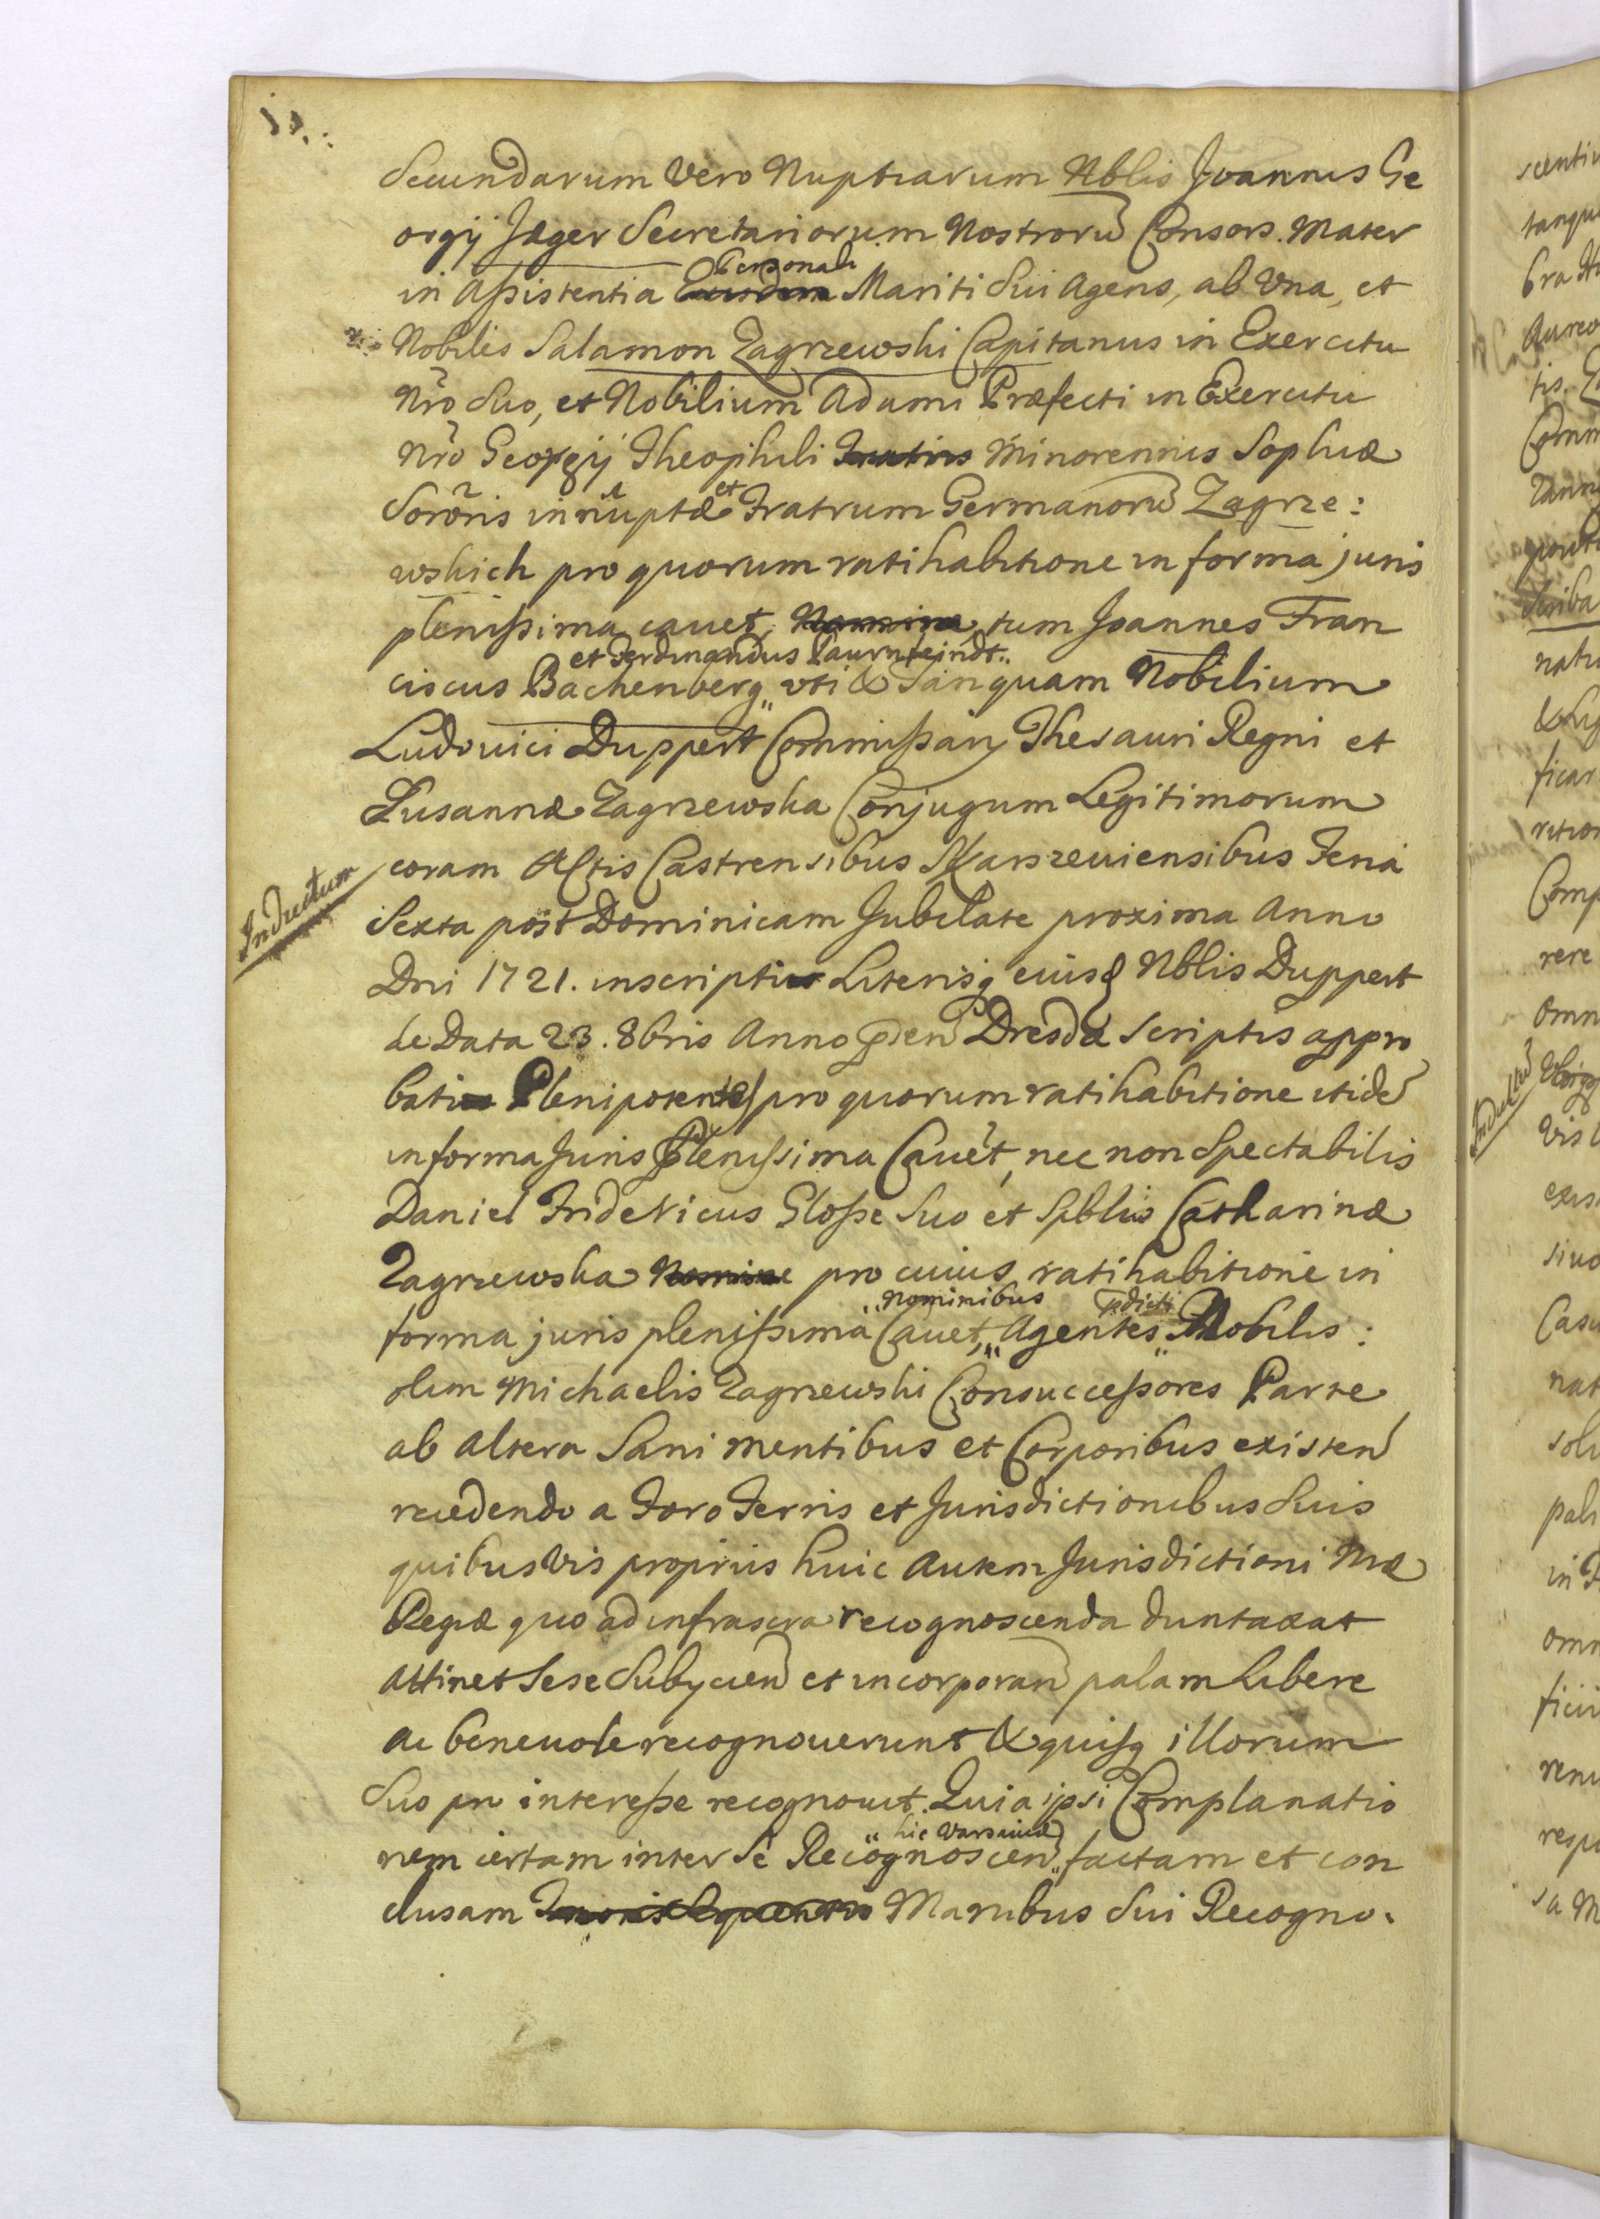 Secundarum Vero Nuptiarum Nblis Joannis Ge
orgij Jæger Secretariorum Nostrorũ Consors. Mater
personali
in Assistentia Eiusdem Mariti Sui Agens, ab Vna, et
Nobilis Salamon Zagrzewski Capitanus in Exercitu
Nro Suo, et Nobilium Adami Præfecti in Exercitu
Nro Georgij Theophili Fratris Minorennis Sophiæ
et
Sororis innuptæ Fratrum Germanorũ Zagrze:
wskich pro quorum ratihabitione in forma juris
plenissima cauet, Nomine, tum Joannes Fran
et Ferdinandus
ciscus Bachenberg uti & Tanquam Nobilium
Ludouici Duppert Commissarij Thesauri Regni et
Susannæ Zagrzewska Conjugum Legitimorum
coram Actis Castrensibus Warszeuiensibus Feria
Inductum
Sexta post Dominicam Jubilate proxima Anno
Dni 1721. inscriptis Literisq eiusd Nblis Duppert
de Data 23. 8bris Anno psen Dresdæ Scriptis appro
batis Plenipotentes pro quorum ratihabitione itide
in forma Juris plenissima Cauet, nec non Spectabilis
Daniel Fridericus Glosse Suo et Spblis Catharinæ
Zagrzewska Nomine pro cuius ratihabitione in
nominibus pdicti
forma juris plenissima Cauet, Agentes Nobilis:
olim Michaelis Zagrzewski Consuccessores Parte
ab altera Sani mentibus et Corporibus existen
recedendo a Foro Terris et Jurisdictionibus Suis
quibusvis proprijs huic Autem Jurisdictioni Nræ
Regiæ quo ad infrascra recognoscenda duntaxat
attinet Sese Subijcien et incorporan palam Libere
ac beneuole recognouerunt & quisq illorum
Suo pro interesse recognouit. Quia ipsi Complanatio
hic Varsauiæ
nem certam inter Se Recognoscen factam et con
clusam Manibus Sui Recogno.